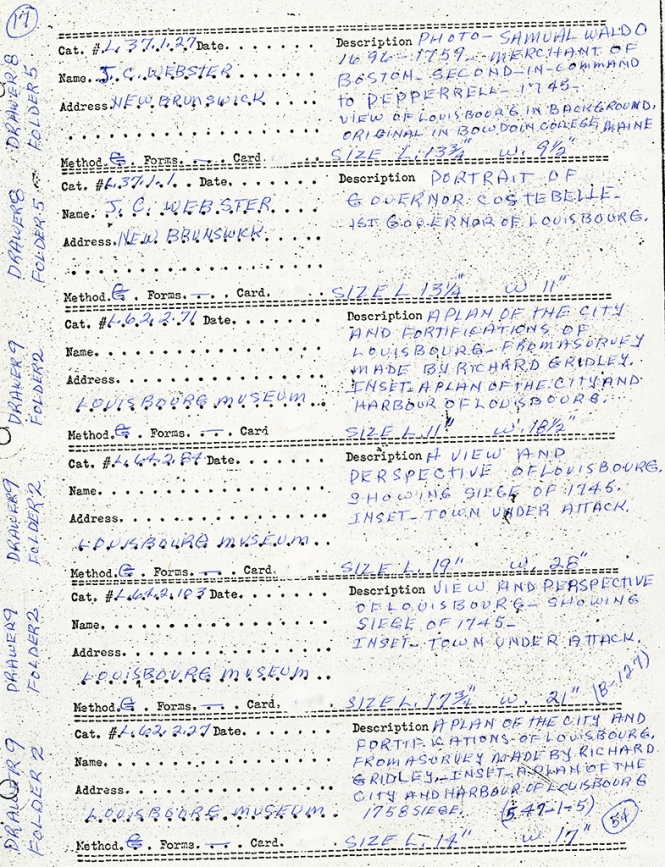 17
DRAWER 8
FOLDER 5
Cat. # L.37.1.27 Date. . . . . . . .
Name. J. C. WEBSTER
Address. NEW BRUNSWICK
Method. G . Forms. — . . Card
Description PHOTO - SAMUAL WALDO
1696 - 1759 - MERCHANT OF
BOSTON - SECOND-IN-COMMAND
to PEPPERRELL - 1745 -
VIEW OF LOUISBOURG IN BACKGROUND,
ORIGINAL IN BOWDOIN COLLEGE, MAINE
SIZE L. 13¾" W. 9½"
DRAWER 8
FOLDER 5
Cat. # L.37.1.1 . . Date. . . . . . . .
Name. J. C. WEBSTER
Address. NEW BRUNSWICK
Method. G . Forms. — . . Card.
Description PORTRAIT OF
GOVERNOR COSTEBELLE -
1ST GOVERNOR OF LOUISBOURG.
SIZE L 13¼" W 11"
DRAWER 9
FOLDER 2
Cat. # L.62.2.71 Date. . . . . . . .
Name.
Address.
LOUISBOURG MUSEUM
Method. G . Forms. — . Card
Description A PLAN OF THE CITY
AND FORTIFICATIONS OF
LOUISBOURG - FROM A SURVEY
MADE BY RICHARD GRIDLEY.
INSET - A PLAN OF THE CITY AND
HARBOUR OF LOUISBOURG.
SIZE L. 11" W. 18½"
DRAWER 9
FOLDER 2
Cat. # Date. . . . . . . .
Name.
Address.
LOUISBOURG MUSEUM
Method. G . Forms. — . Card.
Description A VIEW AND
PERSPECTIVE OF LOUISBOURG.
SHOWING SIEGE OF 1745.
INSET - TOWN UNDER ATTACK.
SIZE L. 19" W. 28"
DRAWER 9
FOLDER 2
Cat. # Date. . . . . . . .
Name.
Address.
LOUISBOURG MUSEUM
Method. G . Forms. — . Card.
Description VIEW AND PERSPECTIVE
OF LOUISBOURG - SHOWING
SIEGE OF 1745 -
INSET - TOWN UNDER ATTACK.
SIZE L. 17¾" W. 21" (B-127)
DRAWER 9
FOLDER 2
Cat. # L.62.2.27 Date. . . . . . . .
Name.
Address.
LOUISBOURG MUSEUM
Method. G . Forms. — . . Card.
Description A PLAN OF THE CITY AND
FORTIFICATIONS OF LOUISBOURG.
FROM A SURVEY MADE BY RICHARD
GRIDLEY. - INSET - A PLAN OF THE
CITY AND HARBOUR OF LOUISBOURG
1758 SIEGE. (5.47-1-5)
SIZE L. 14" W. 17"
54